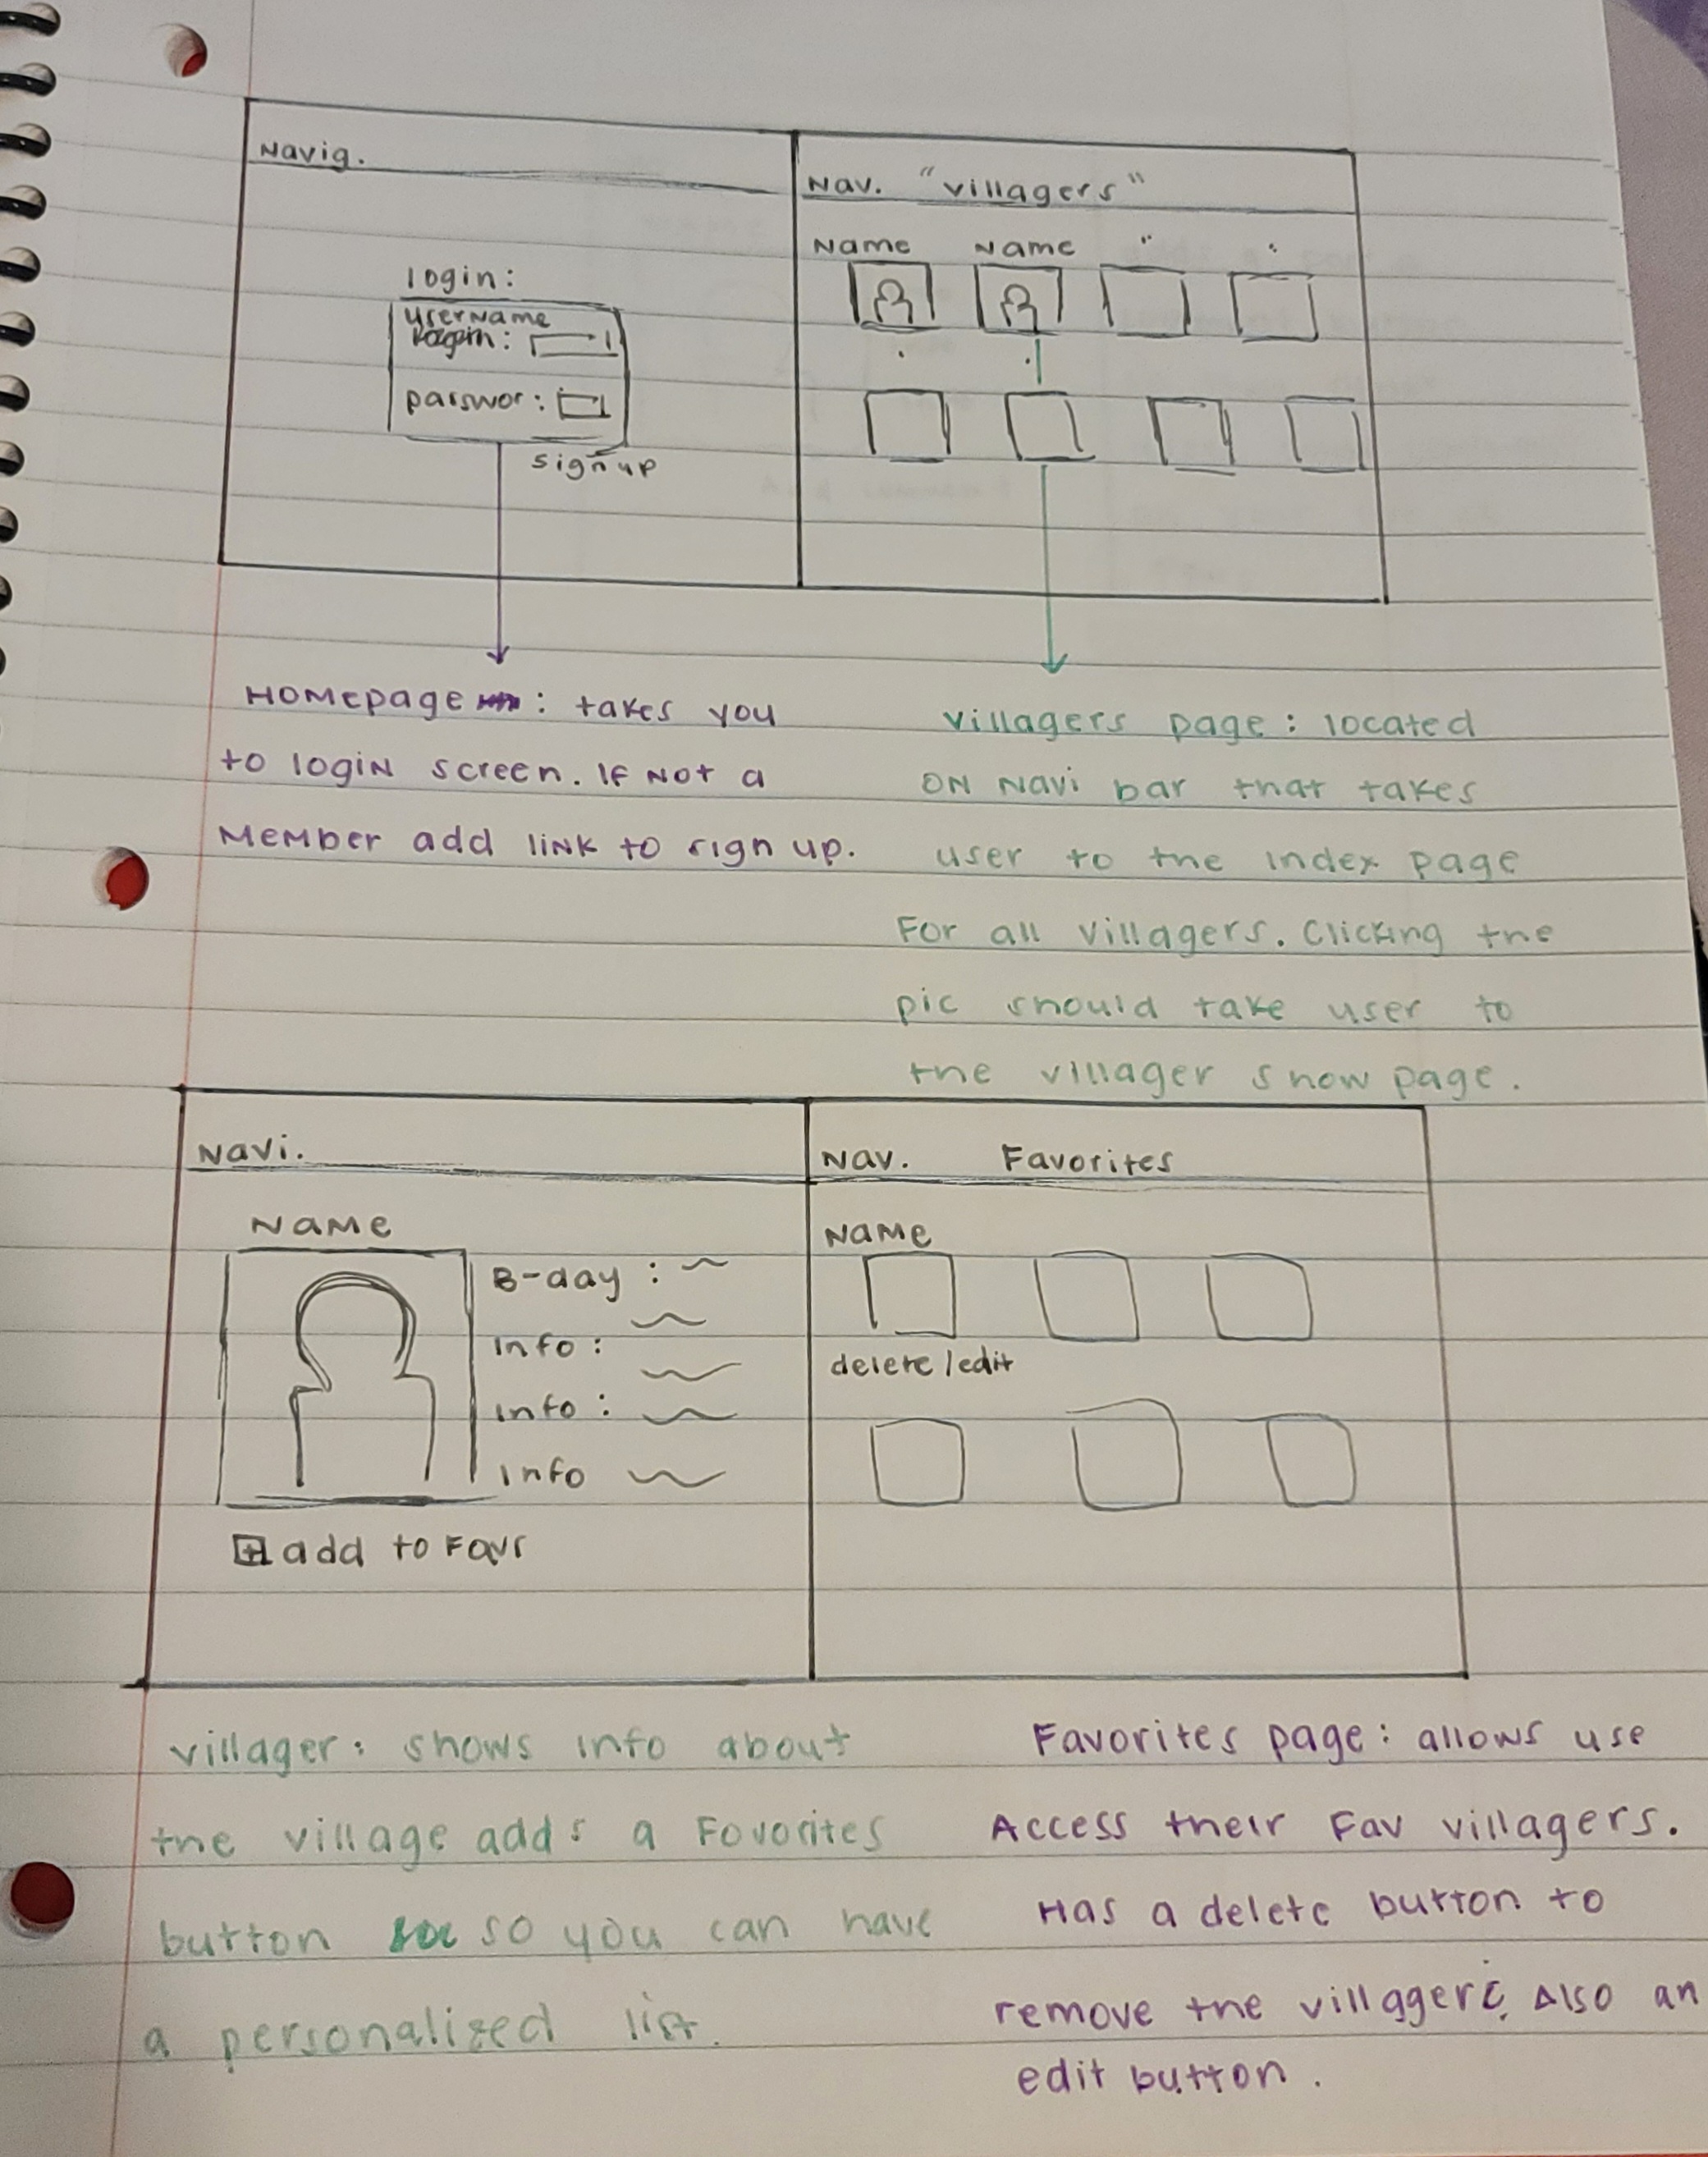 Navig.
login:
username
: 
passwor:
sign up
Nav. "villagers"
Name Name " "
Homepage : takes you
to login screen. If not a
member add link to sign up.
villagers page: located
on navi bar that takes
user to the index page
For all villagers. Clicking the
pic should take user to
the villager show page.
Navi.
Name
B-day :
info :
info :
info
+ add to Favs
Nav. Favorites
Name
delete/edit
villager: shows info about
the village adds a Favorites
button so you can have
a personalized list.
Favorites page: allows use
Access their Fav villagers.
Has a delete button to
remove the villagers. Also an
edit button.